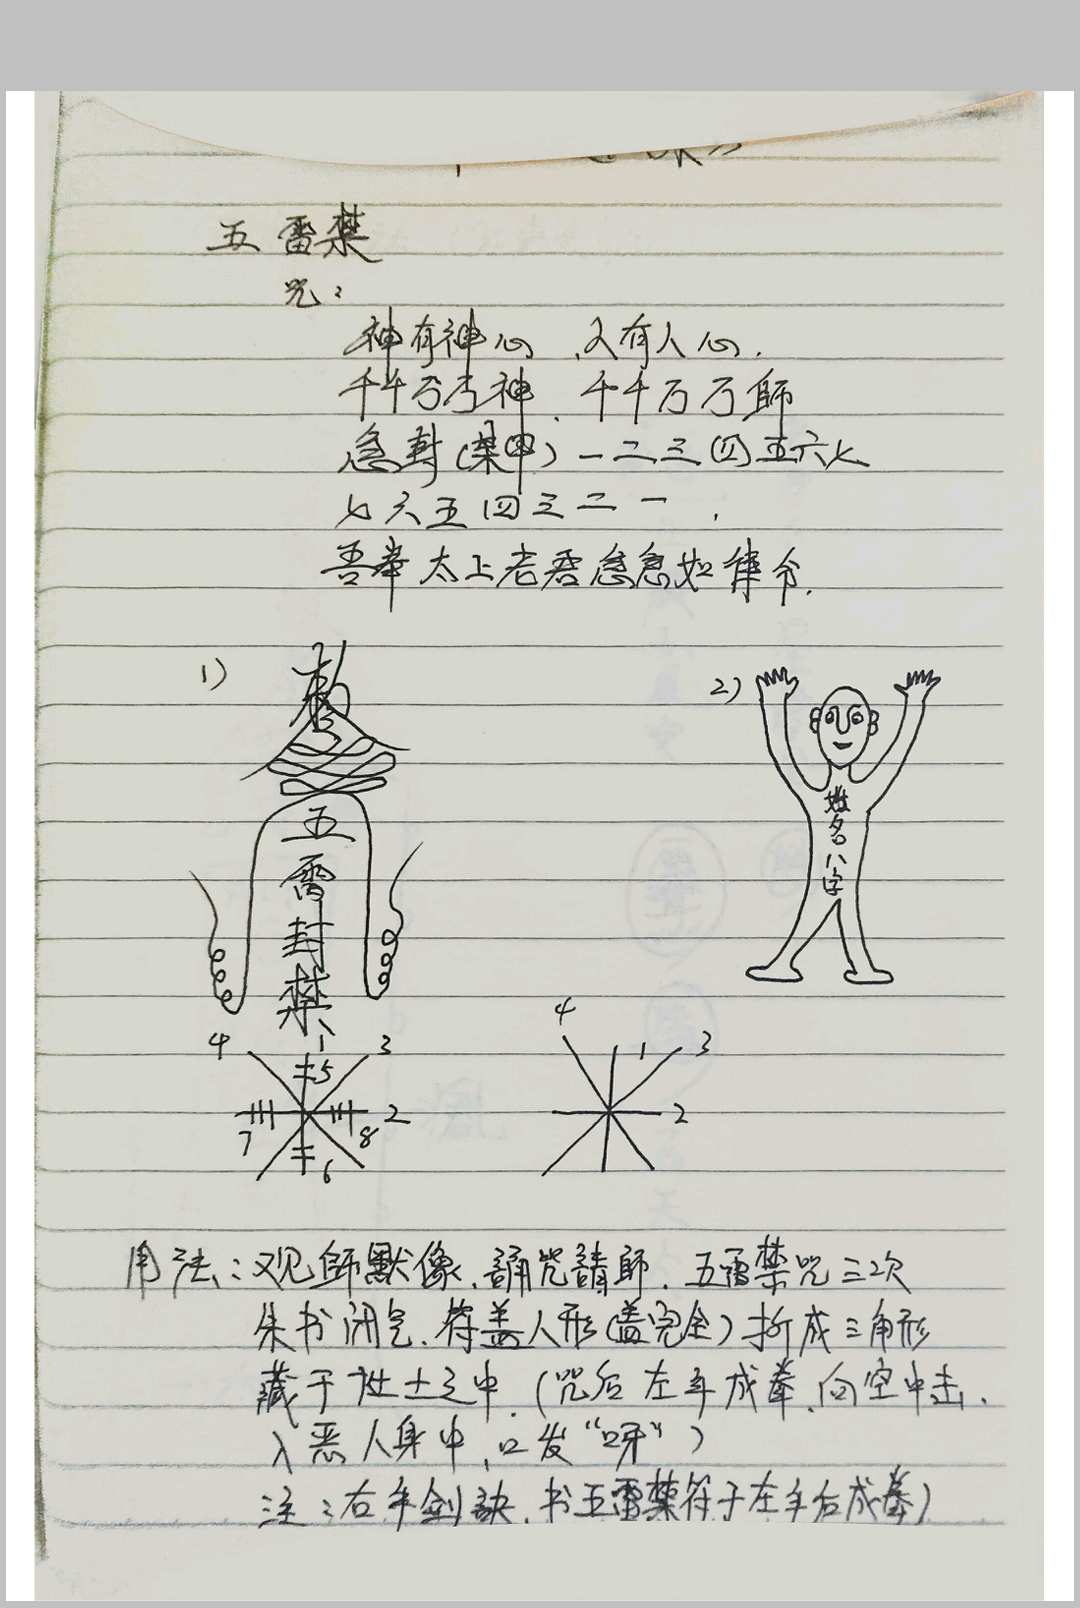 五雷禁
咒：
神有神心、人有人心.
千千万万神、千千万万師
急封(某甲)一二三四五六七
七六五四三二一.
吾奉太上老君急急如律令.
1)
2)
敕
五
雷
封
禁
姓
名
八
字
4 1 3
5
2
7 8
6
4 1 3
2
用法：观師默像、誦咒請師、五雷禁咒三次
朱书闭气、符盖人形(盖完全)折成三角形
藏于灶土之中.(咒后左手成拳、向空中击、
入恶人身中、口发“呀”)
注：右手剑訣、书五雷禁符于左手后成拳)